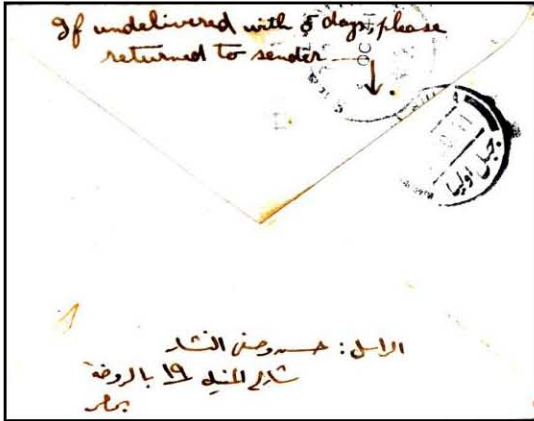 If undelivered with 5 days, please
returned to sender
OCT
جبل اوليا
الراسل: حسن وصفى النشار
شارع المنيل ١٩ بالروضة
بمصر